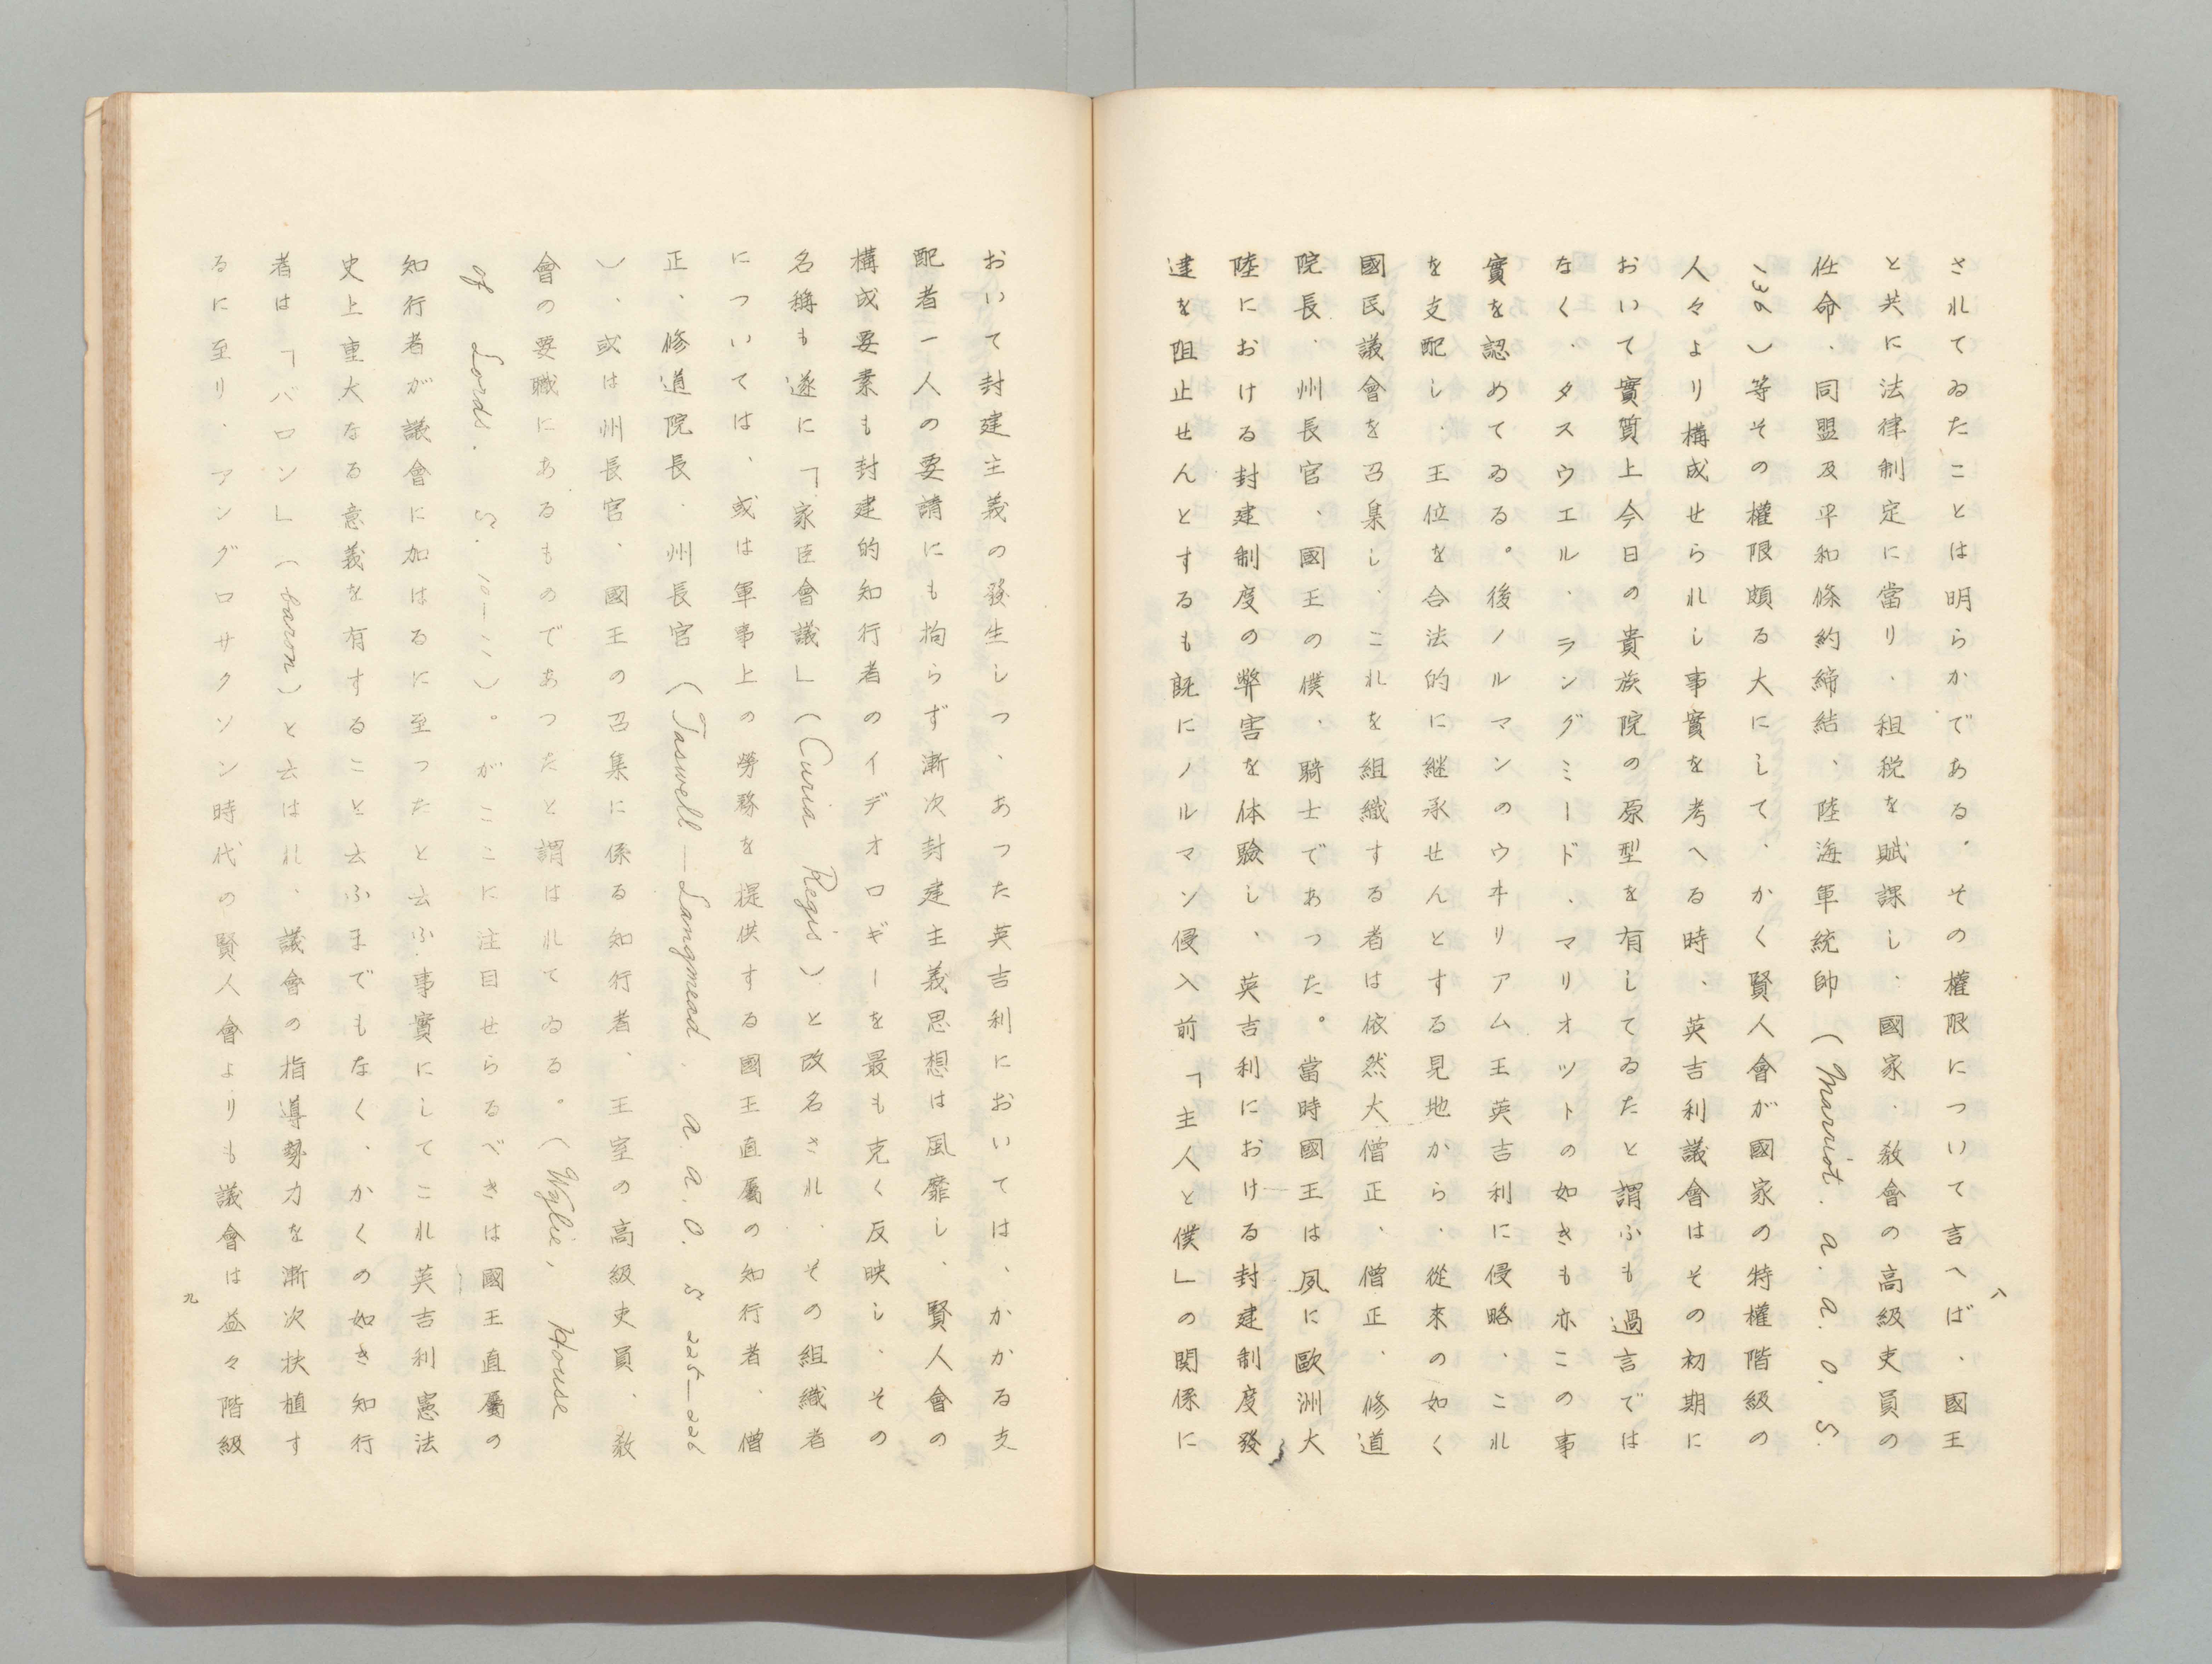 されてゐたことは明らかである。その權限について言へば、國王
と共に法律制定に當り、租税を賦課し、國家、教會の高級吏員の
任命、同盟及平和條約締結、陸海軍統帥（Marriot. a. a. O. S.
136）等その權限頗る大にして、かく賢人會が國家の特權階級の
人々より構成せられし事實を考へる時、英吉利議會はその初期に
おいて實質上今日の貴族院の原型を有してゐたと謂ふも過言では
なく、タスウエル、ラングミード、マリオツトの如きも亦この事
實を認めてゐる。後ノルマンのウヰリアム王英吉利に侵略、これ
を支配し、王位を合法的に継承せんとする見地から、從來の如く
國民議會を召集し、これを組織する者は依然大僧正、僧正、修道
院長、州長官、國王の僕、騎士であつた。當時國王は夙に歐洲大
陸における封建制度の弊害を体驗し、英吉利における封建制度發
達を阻止せんとするも既にノルマン侵入前「主人と僕」の関係に
八
おいて封建主義の發生しつ、あつた英吉利においては、かかる支
配者一人の要請にも拘らず漸次封建主義思想は風靡し、賢人會の
構成要素も封建的知行者のイデオロギーを最も克く反映し、その
名稱も遂に「家臣會議」（Curia Regis）と改名され、その組織者
については、或は軍事上の勞務を提供する國王直屬の知行者、僧
正、修道院長、州長官（Taswell—Langmead. a. a. O. S. 225—226
）、或は州長官、國王の召集に係る知行者、王室の高級吏員、教
會の要職にあるものであつたと謂はれてゐる。（Wylie, House
of Lord. S. 10—11）。がここに注目せらるべきは國王直屬の
知行者が議會に加はるに至つたと云ふ事實にしてこれ英吉利憲法
史上重大なる意義を有すること云ふまでもなく、かくの如き知行
者は「バロン」（baron）と云はれ、議會の指導勢力を漸次扶植す
るに至り、アングロサクソン時代の賢人會よりも議會は益々階級
九